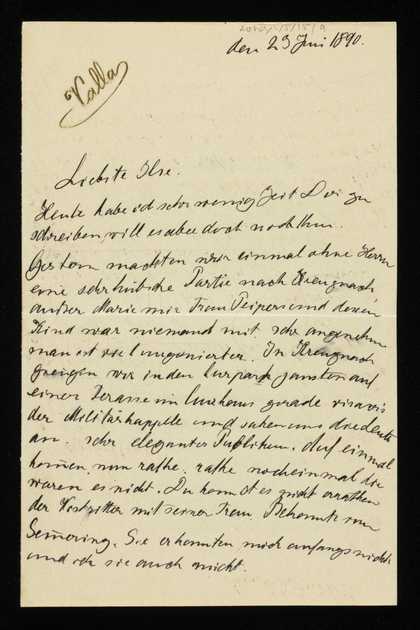 den 23 Juni 1890.
Valla
Liebste Ilse.
Heute habe ich sehr wenig Zeit Dir zu
schreiben, will es aber doch noch thun.
Gestern machten wir einmal ohne Herrn
eine sehr hübsche Partie nach Kreuznach
außer Marie mir Frau Peipers und deren
Kind war niemand mit sehr angenehm
man ist viel ungenierter. In Kreuznach
giengen wir in den Curpark jausten auf
einer Terasse im Curhaus gerade visavis
der Militärkappelle und sahen uns die Leute
an. sehr elegantes Publikum. Auf einmal
kommen, nun rathe. rathe noch einmal die
waren es nicht. Du kannst es nicht errathen
der mit seiner Frau Bekannte vom
Semmering. Sie erkannten mich anfangs nicht
und ich sie auch nicht.